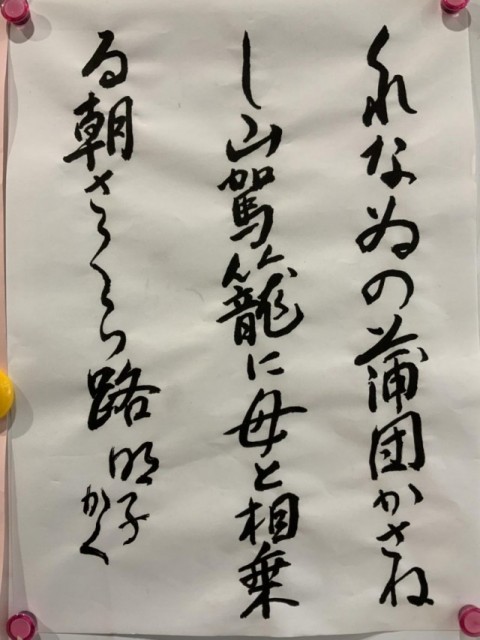 くれなゐの蒲団かさね
し山駕籠に母と相乗
る朝さくら路 明子
かく